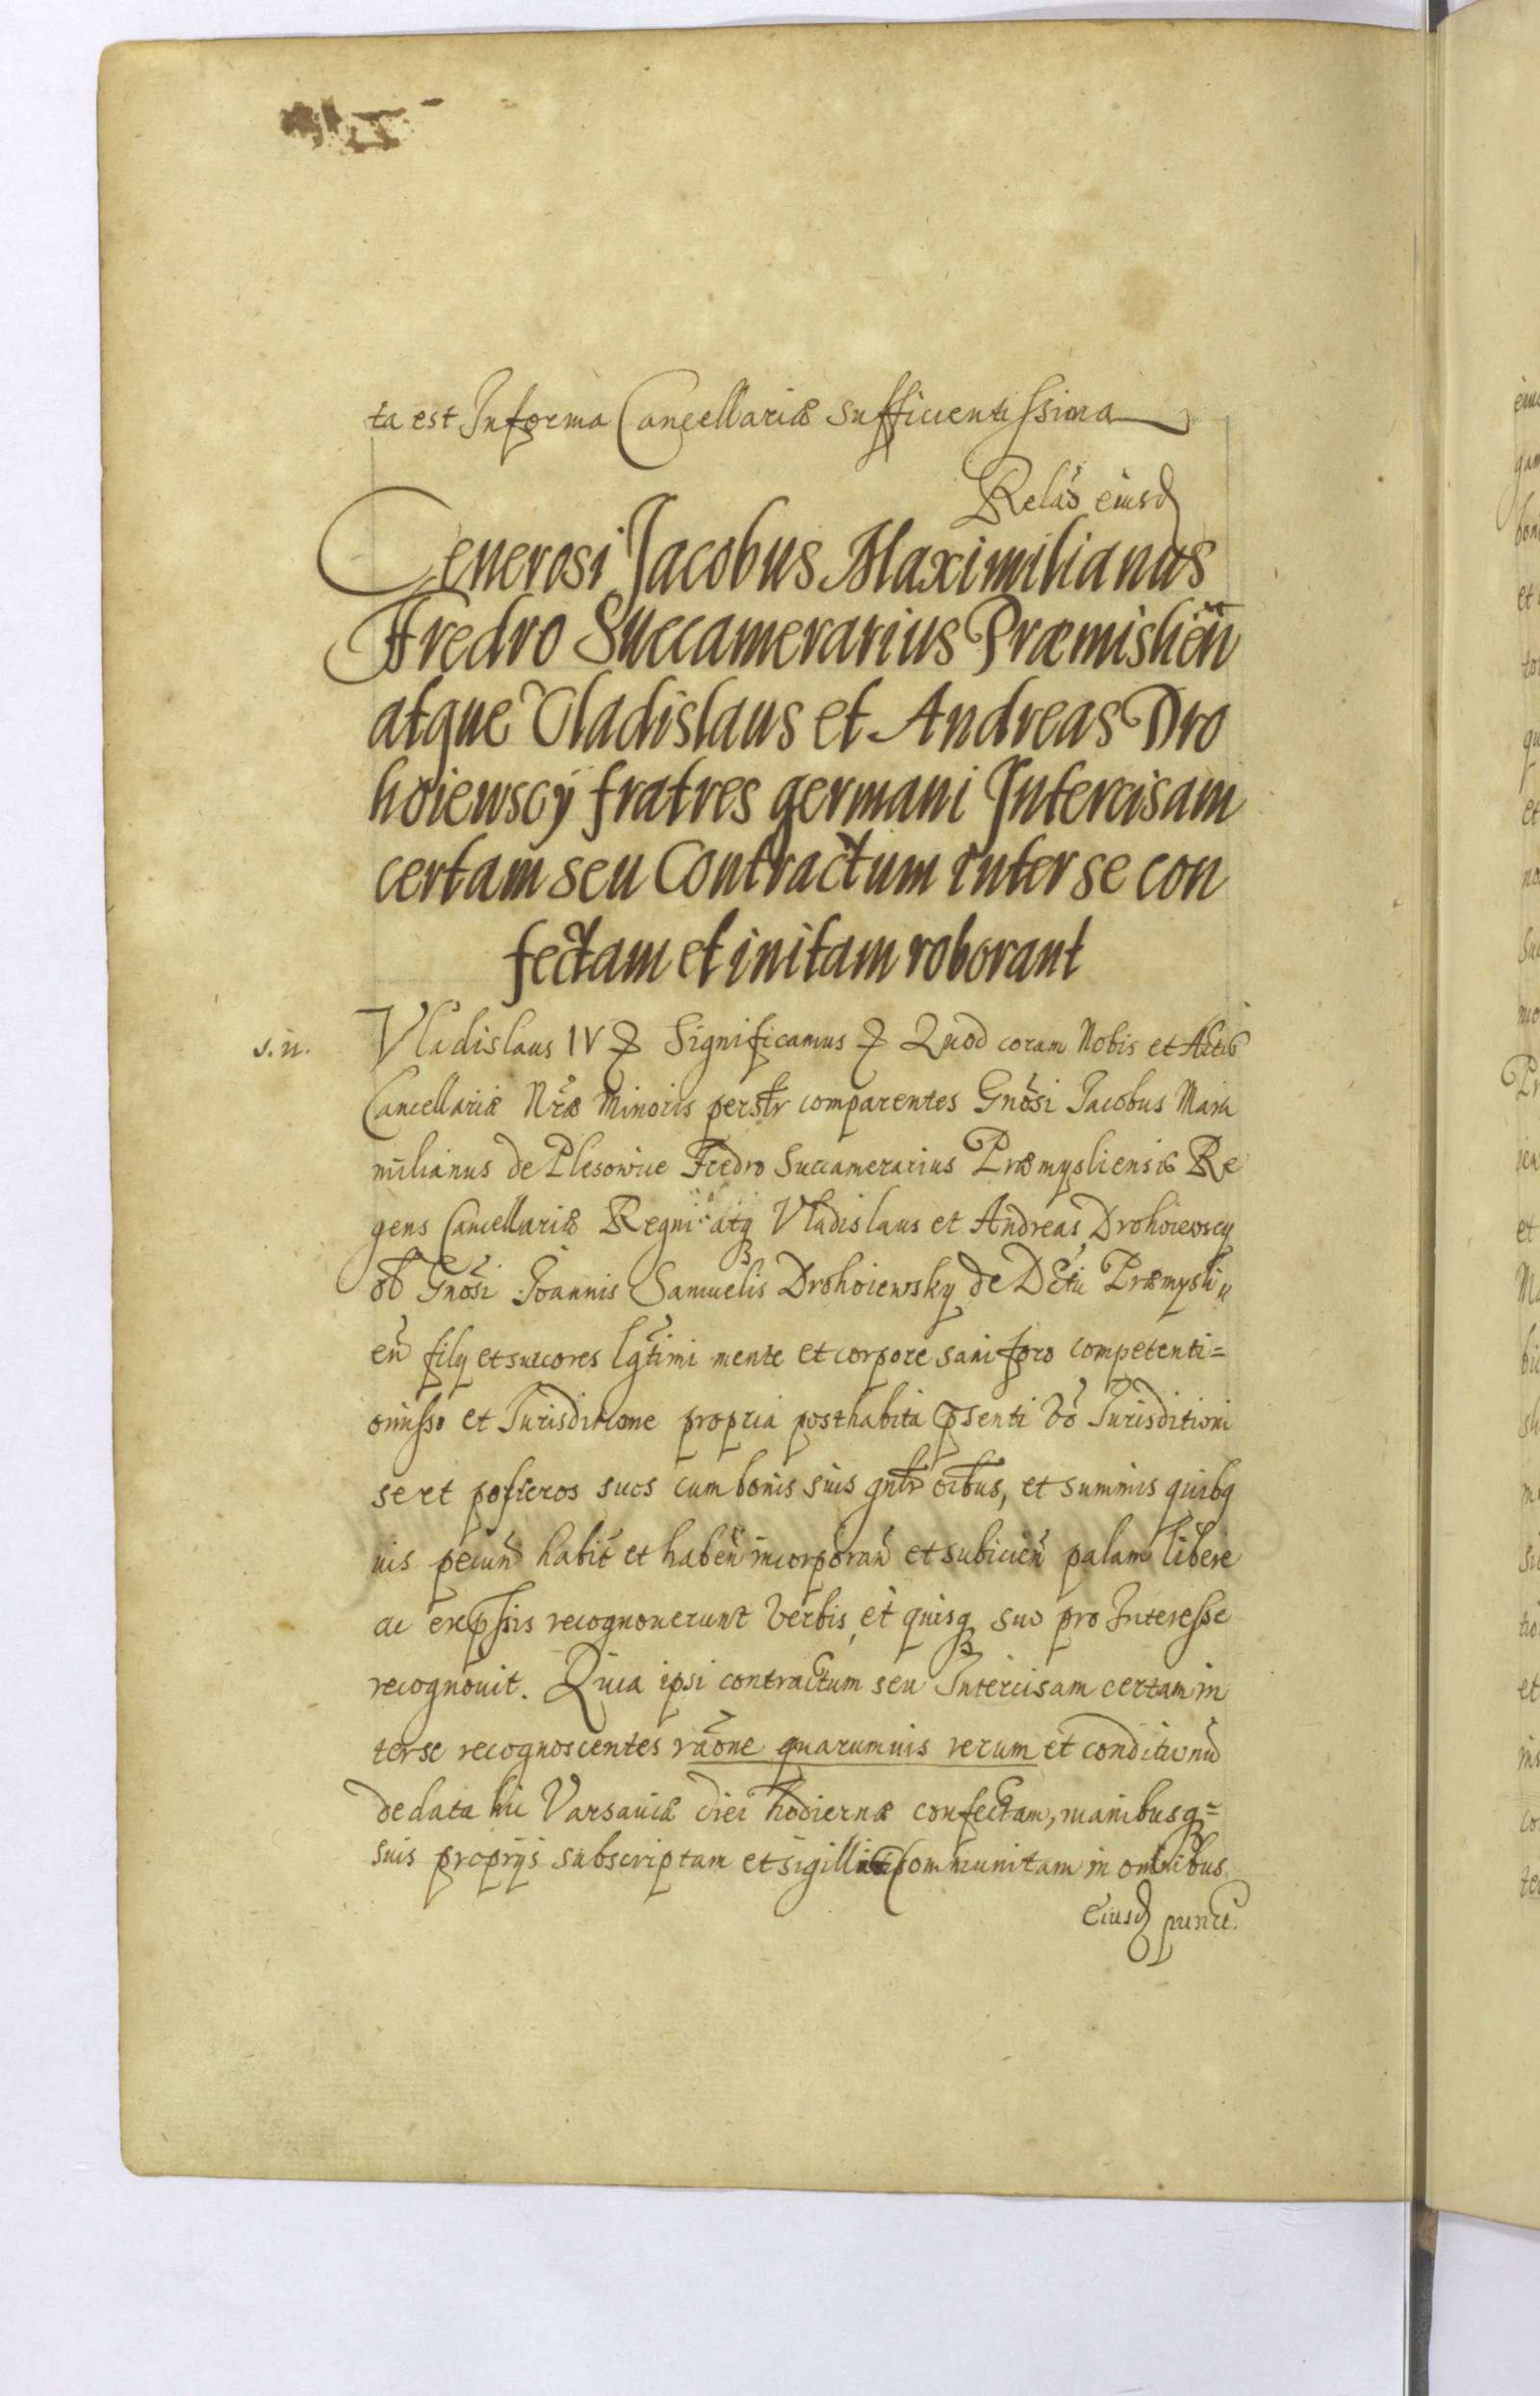 ta est Informa Cancellariæ sufficientissima
Relaõ eiusd
Generosi Jacobus Maximilianus
Fredro Succamerarius Præmislien̄
atque Vladislaus et Andreas Dro
hoiewscÿ fratres germani Intercisam
certam seu Contractum inter se con
fectam et initam roborant
s. n.
Vladislaus IV Significamus Quod coram Nobis et Actis
Cancellariæ Nræ Minoris persr comparentes Gnosi Jacobus Maxi
milianus de Plesowice Fredro Succamerarius Præmysliensis Re
gens Cancellariæ Regni atq Vladislaus et Andreas Drohoiewscy
ob Gnosi Joannis Samuelis Drohoiewsky de Præmysli
en filÿ et succores lgtimi mente et corpore sani foro competenti=
omisso et Jurisditione propria posthabita psenti vo Jurisditioni
se et posteros suos cum bonis suis gntr oibus, et summis quibq
uis pecun habit et haben incorporan et subicien palam libere
ac expssis recognouerunt verbis, et quisq suo pro Interesse
recognouit. Quia ipsi contractum seu Intercisam certam in
terse recognoscentes raone quarumuis rerum et conditionu
de data hic Varsauiæ diei hodiernæ confectam, manibusq=
suis proprÿs subscriptam et communitam in omnibus
Eiusd punct.